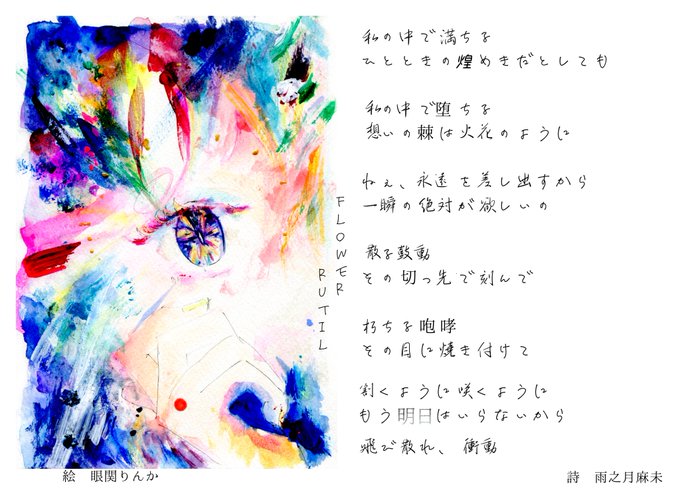 私の中で満ちる
ひとときの煌めきだとしても
私の中で堕ちる
想いの棘は火花のように
ねぇ、永遠を差し出すから
一瞬の絶対が欲しいの
散る鼓動
その切っ先で刻んで
朽ちる咆哮
その目に焼き付けて
割くように咲くように
もう明日はいらないから
飛び散れ、衝動
FLOWER
RUTIL
絵 眼関りんか
詩 雨之月麻未